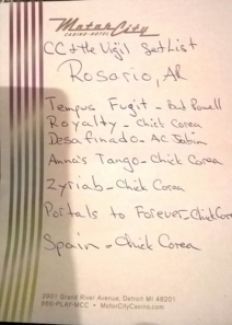 MotorCity
CASINO·HOTEL
CC & the Vigil Set List
Rosario, AR
Tempus Fugit - Bud Powell
Royalty - Chick Corea
Desafinado - AC Jobim
Anna's Tango - Chick Corea
Zyriab - Chick Corea
Portals to Forever - Chick Corea
Spain - Chick Corea
2901 Grand River Avenue, Detroit MI 48201
866-PLAY-MCC • MotorCityCasino.com